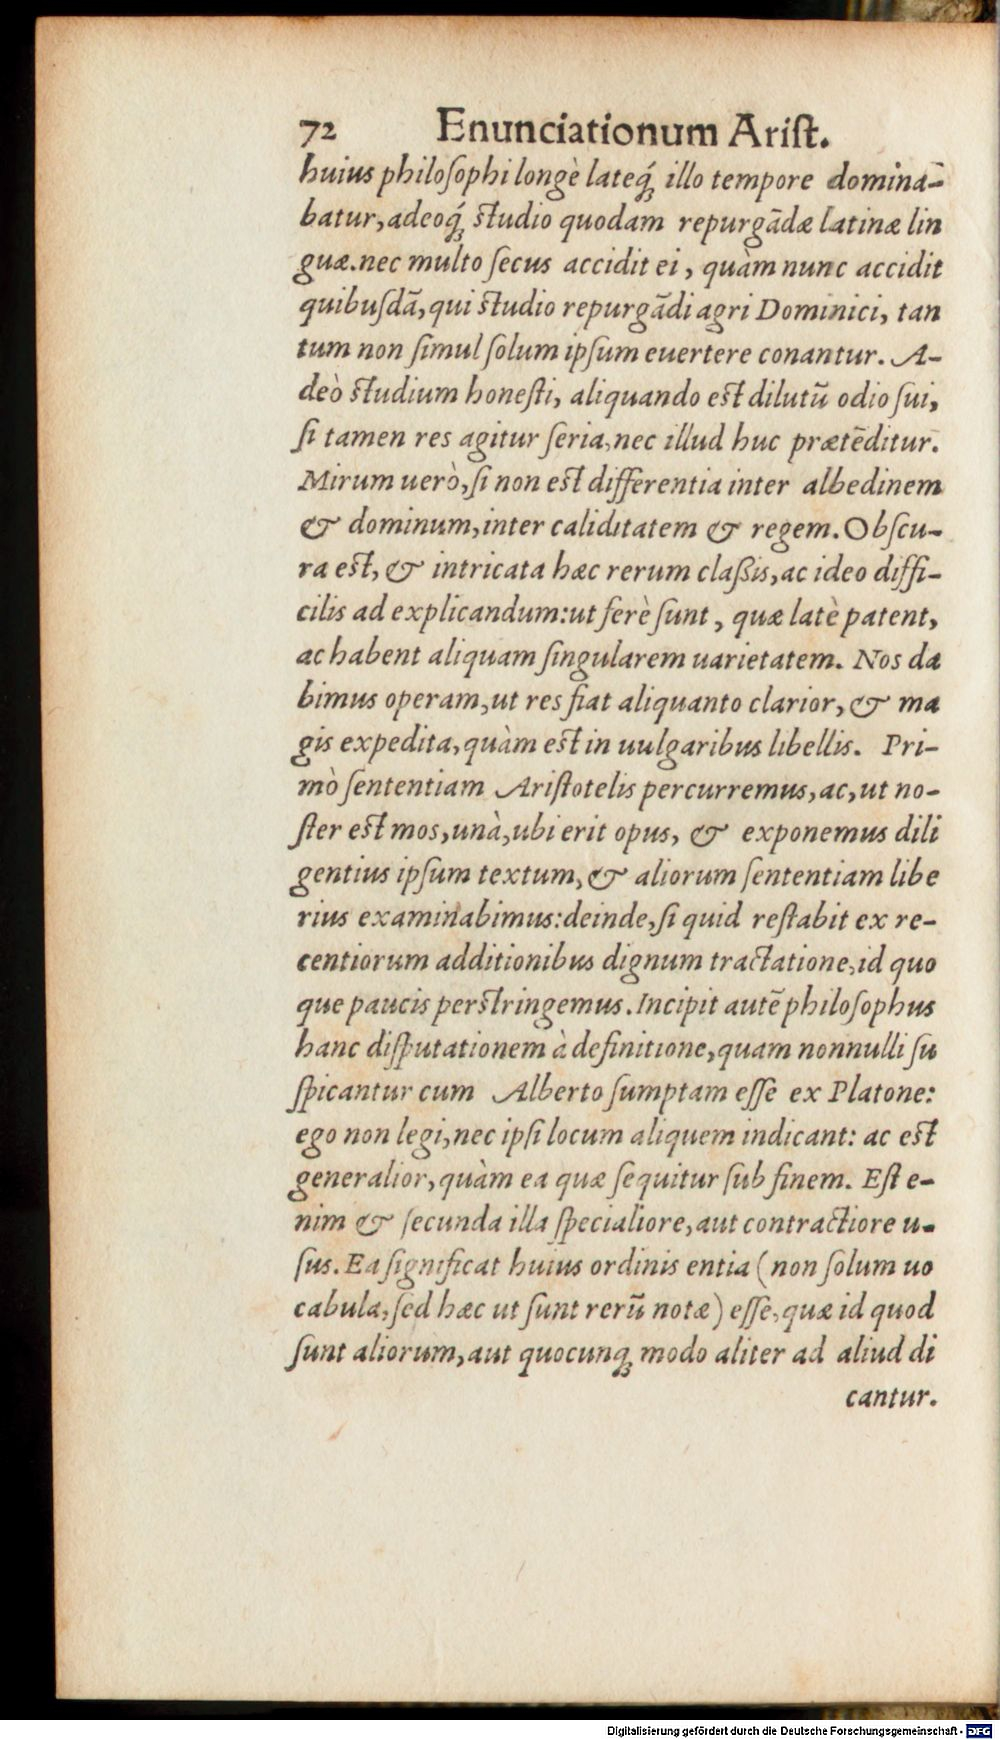 72 Enunciationum Ariſt.
huius philoſophi longè lateq́; illo tempore domina-
batur, adeoq́; ſtudio quodam repurgãdæ latinæ lin
guæ. nec multo ſecus accidit ei, quàm nunc accidit
quibuſdã, qui ſtudio repurgãdi agri Dominici, tan
tum non ſimul ſolum ipſum euertere conantur. A-
deò ſtudium honeſti, aliquando eſt dilutũ odio ſui,
ſi tamen res agitur ſeria, nec illud huc prætẽditur.
Mirum uerò, ſi non eſt differentia inter albedinem
& dominum, inter caliditatem & regem. Obſcu-
ra eſt, & intricata hæc rerum claßis, ac ideo diffi-
cilis ad explicandum: ut ferè ſunt, quæ latè patent,
ac habent aliquam ſingularem uarietatem. Nos da
bimus operam, ut res fiat aliquanto clarior, & ma
gis expedita, quàm eſt in uulgaribus libellis. Pri-
mò ſententiam Ariſtotelis percurremus, ac, ut no-
ſter eſt mos, unà, ubi erit opus, & exponemus dili
gentius ipſum textum, & aliorum ſententiam libe
rius examinabimus: deinde, ſi quid reſtabit ex re-
centiorum additionibus dignum tractatione, id quo
que paucis perſtringemus. Incipit autẽ philoſophus
hanc diſputationem à definitione, quam nonnulli ſu
ſpicantur cum Alberto ſumptam eſſe ex Platone:
ego non legi, nec ipſi locum aliquem indicant: ac eſt
generalior, quàm ea quæ ſequitur ſub finem. Eſt e-
nim & ſecunda illa ſpecialiore, aut contractiore u-
ſus. Ea ſignificat huius ordinis entia (non ſolum uo
cabula, ſed hæc ut ſunt rerũ notæ) eſſe, quæ id quod
ſunt aliorum, aut quocunq; modo aliter ad aliud di
cantur.
Digitalisierung gefördert durch die Deutsche Forschungsgemeinschaft - DFG